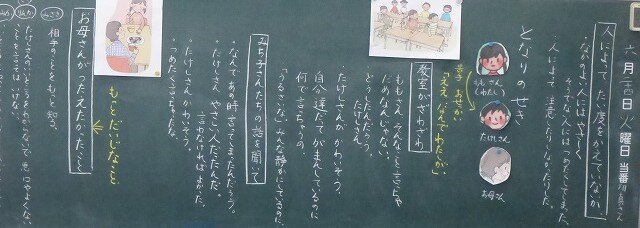 六月十四日火曜日 当番
人によって、たい度をかえていないか。
・なかのよい人には やさしく
そうでない人には つめたくしてしまった。
・人によって 注意したりしなかったりした。
となりのせき
ももさん
(わたし)
たけしさん
お母さん
「ええ、なんでわたしが」
教室がざわざわ
・ももさん、そんなこと言っちゃ
だめなんじゃない。
・どうしたんだろう、
たけしさん。
・たけしさんがかわいそう。
・自分達だってがまんしているのに
何で言っちゃうの。
・「うるさいな」みんな静かにしているのに。
みち子さんたちの話を聞いて
・なんであの時言ってしまったんだろう。
・たけしさん やさしい人だったんだ。
言わなければよかった。
・たけしさん かわいそう。
・つめたく言っちゃった。
もっとだいじなこと
お母さんがつたえたかったこと
相手のことをもっと知る。